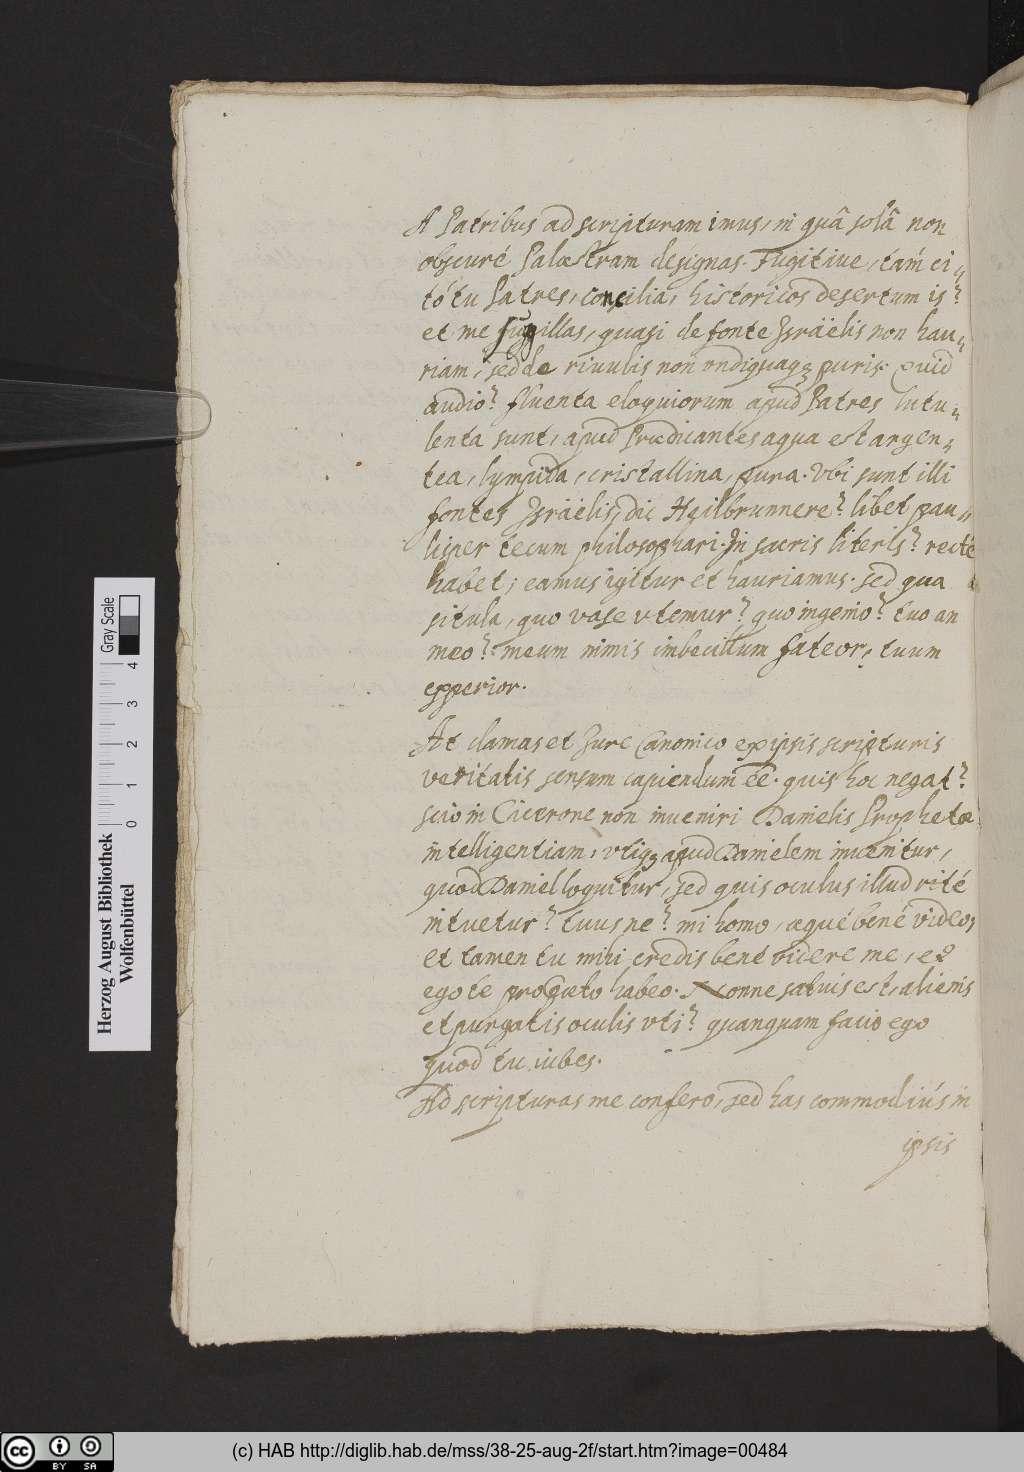 A Patribus ad scripturam imus, in quâ solâ non
obscuré Palæstram designas. Fugitiue, tam ci„
tó tu Patres, concilia, historicos desertum is?
et me sugillas, quasi de fonte Israëlis non hau„
riam, sed de riuulis non vndiquaqȝ puris. Quid
audio? fluenta eloquiorum apud Patres lutu„
lenta sunt, apud Prædicantes aqua est argen„
tea, lympida, cristallina, pura. Vbi sunt illi
fontes Israëlis, dic Heilbrunnere? libet pau„
lisper tecum philosophari. In sacris literis? recté
habet; eamus igitur et hauriamus. sed qua
situla, quo vase vtemur? quo ingenio? tuo an
meo? meum nimis imbecillum fateor, tuum
experior.
At clamas et Iure Canonico ex ipsis scripturis
veritatis sensum capiendum ee. quis hoc negat?
scio in Cicerone non inueniri Danielis Prophetæ
intelligentiam, vtiqȝ apud Danielem inuenitur,
quod Daniel loquitur, sed quis oculus illud rité
intuetur? tuus ne? mi homo, æqué bené video,
et tamen tu mihi credis bene videre me, et
ego te pro cæco habeo. Nonne satius est, alienis
et purgatis oculis vti? quanquam facio ego
quod tu iubes.
Ad scripturas me confero, sed has commodiús in
ipsis
Herzog August Bibliothek
Wolfenbüttel
0 1 2 3 4
Gray Scale
cc BY SA
(c) HAB http://diglib.hab.de/mss/38-25-aug-2f/start.htm?image=00484